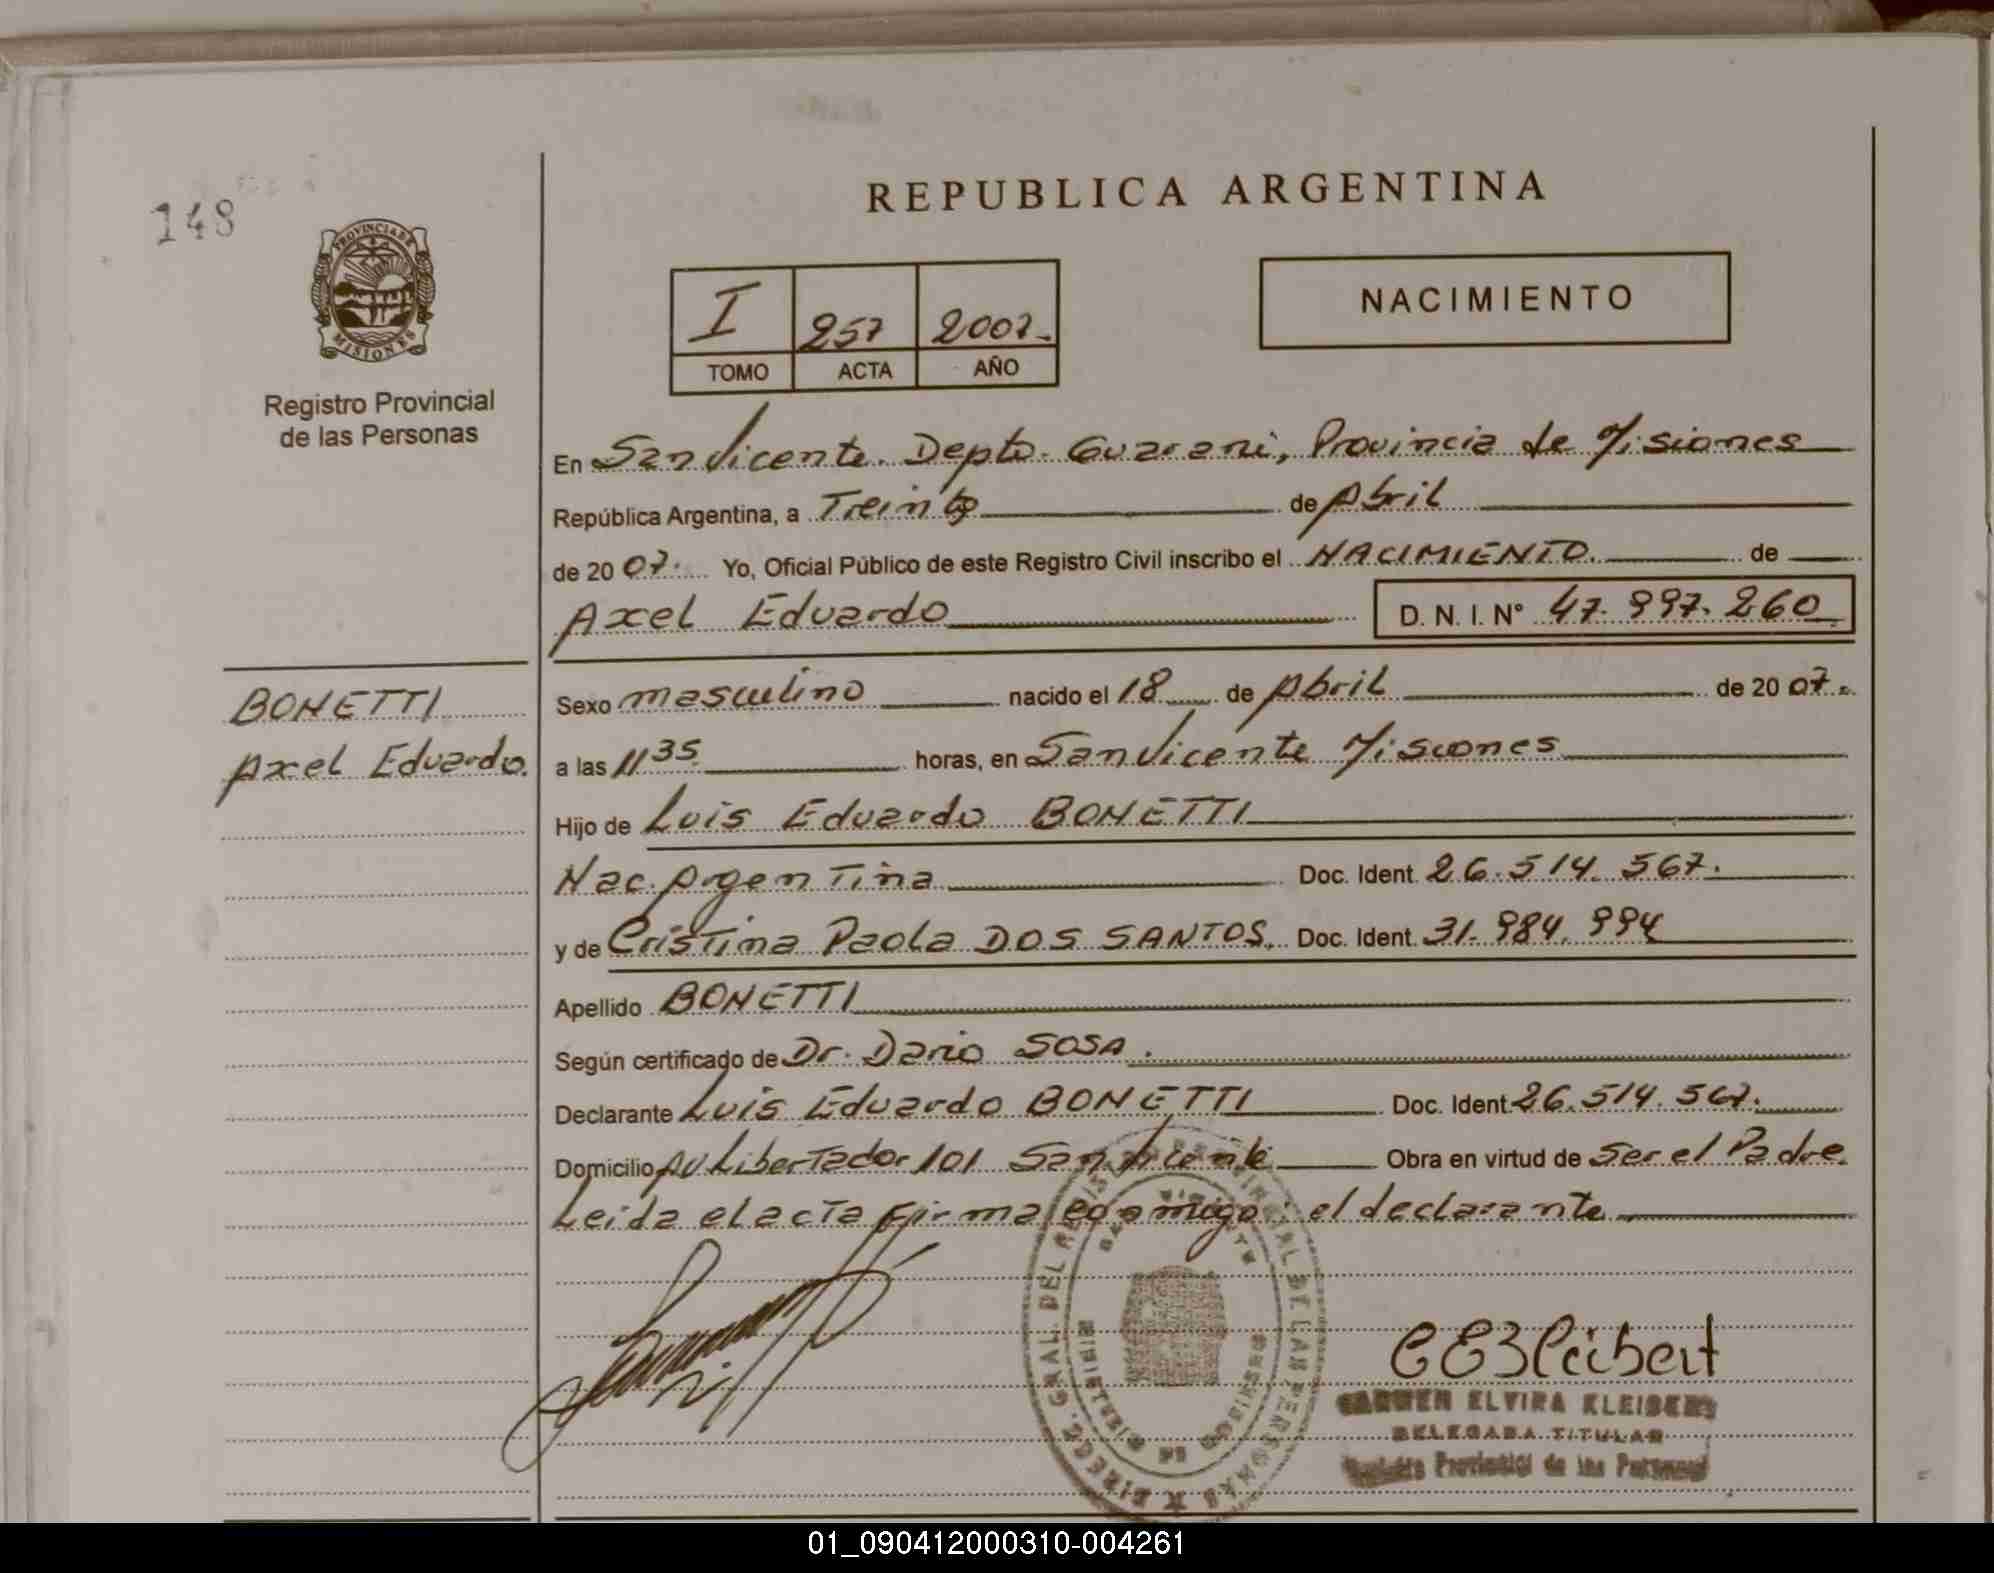 148
PROVINCIA DE
MISIONES
Registro Provincial
de las Personas
REPUBLICA ARGENTINA
I 257 2007.
TOMO ACTA AÑO
NACIMIENTO
En San Vicente. Depto. Guarani, Provincia de Misiones
República Argentina, a Treinta de Abril
de 20 07. Yo, Oficial Público de este Registro Civil inscribo el NACIMIENTO. de
Axel Eduardo D. N. I. Nº 47.997.260
BONETTI
Axel Eduardo.
Sexo masculino nacido el 18 de Abril de 20 07.
a las 11 35 horas, en San Vicente Misiones
Hijo de Luis Eduardo BONETTI
Nac. Argentina Doc. Ident. 26.514.567.
y de Cristina Paola DOS SANTOS. Doc. Ident. 31.984.994
Apellido BONETTI
Según certificado de Dr. Dario SOSA.
Declarante Luis Eduardo BONETTI Doc. Ident. 26.514.567.
Domicilio Av Libertador 101 San Vicente Obra en virtud de Ser el Padre
Leida el acta firma conmigo el declarante
DIRECC. GRAL. DEL REGISTRO PROVINCIAL DE LAS PERSONAS
SAN VICENTE
MISIONES
CEKleibert
CARMEN ELVIRA KLEIBERT
DELEGADA TITULAR
Registro Provincial de las Personas
01_090412000310-004261